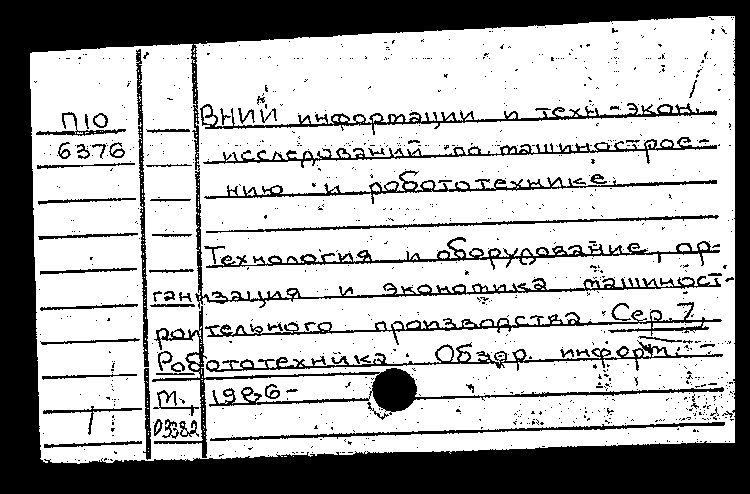 П10
6376
ВНИИ информации и техн.-экон.
исследований по машинострое-
нию и робототехнике.
Технология и оборудование, ор-
ганизация и экономика машиност-
роительного производства. Сер. 7,
Робототехника: Обзор. информ. -
М., 1986-